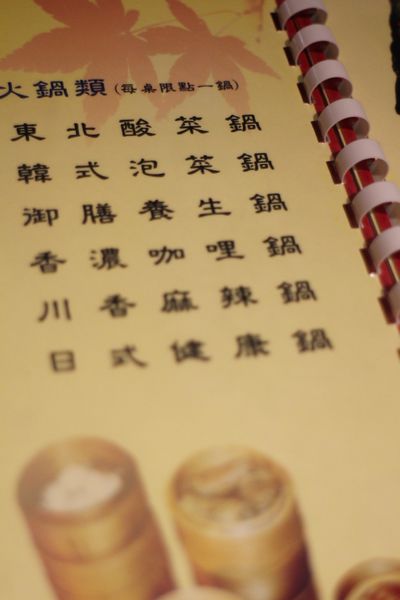 火鍋類(每桌限點一鍋)
東北酸菜鍋
韓式泡菜鍋
御膳養生鍋
香濃咖哩鍋
川香麻辣鍋
日式健康鍋